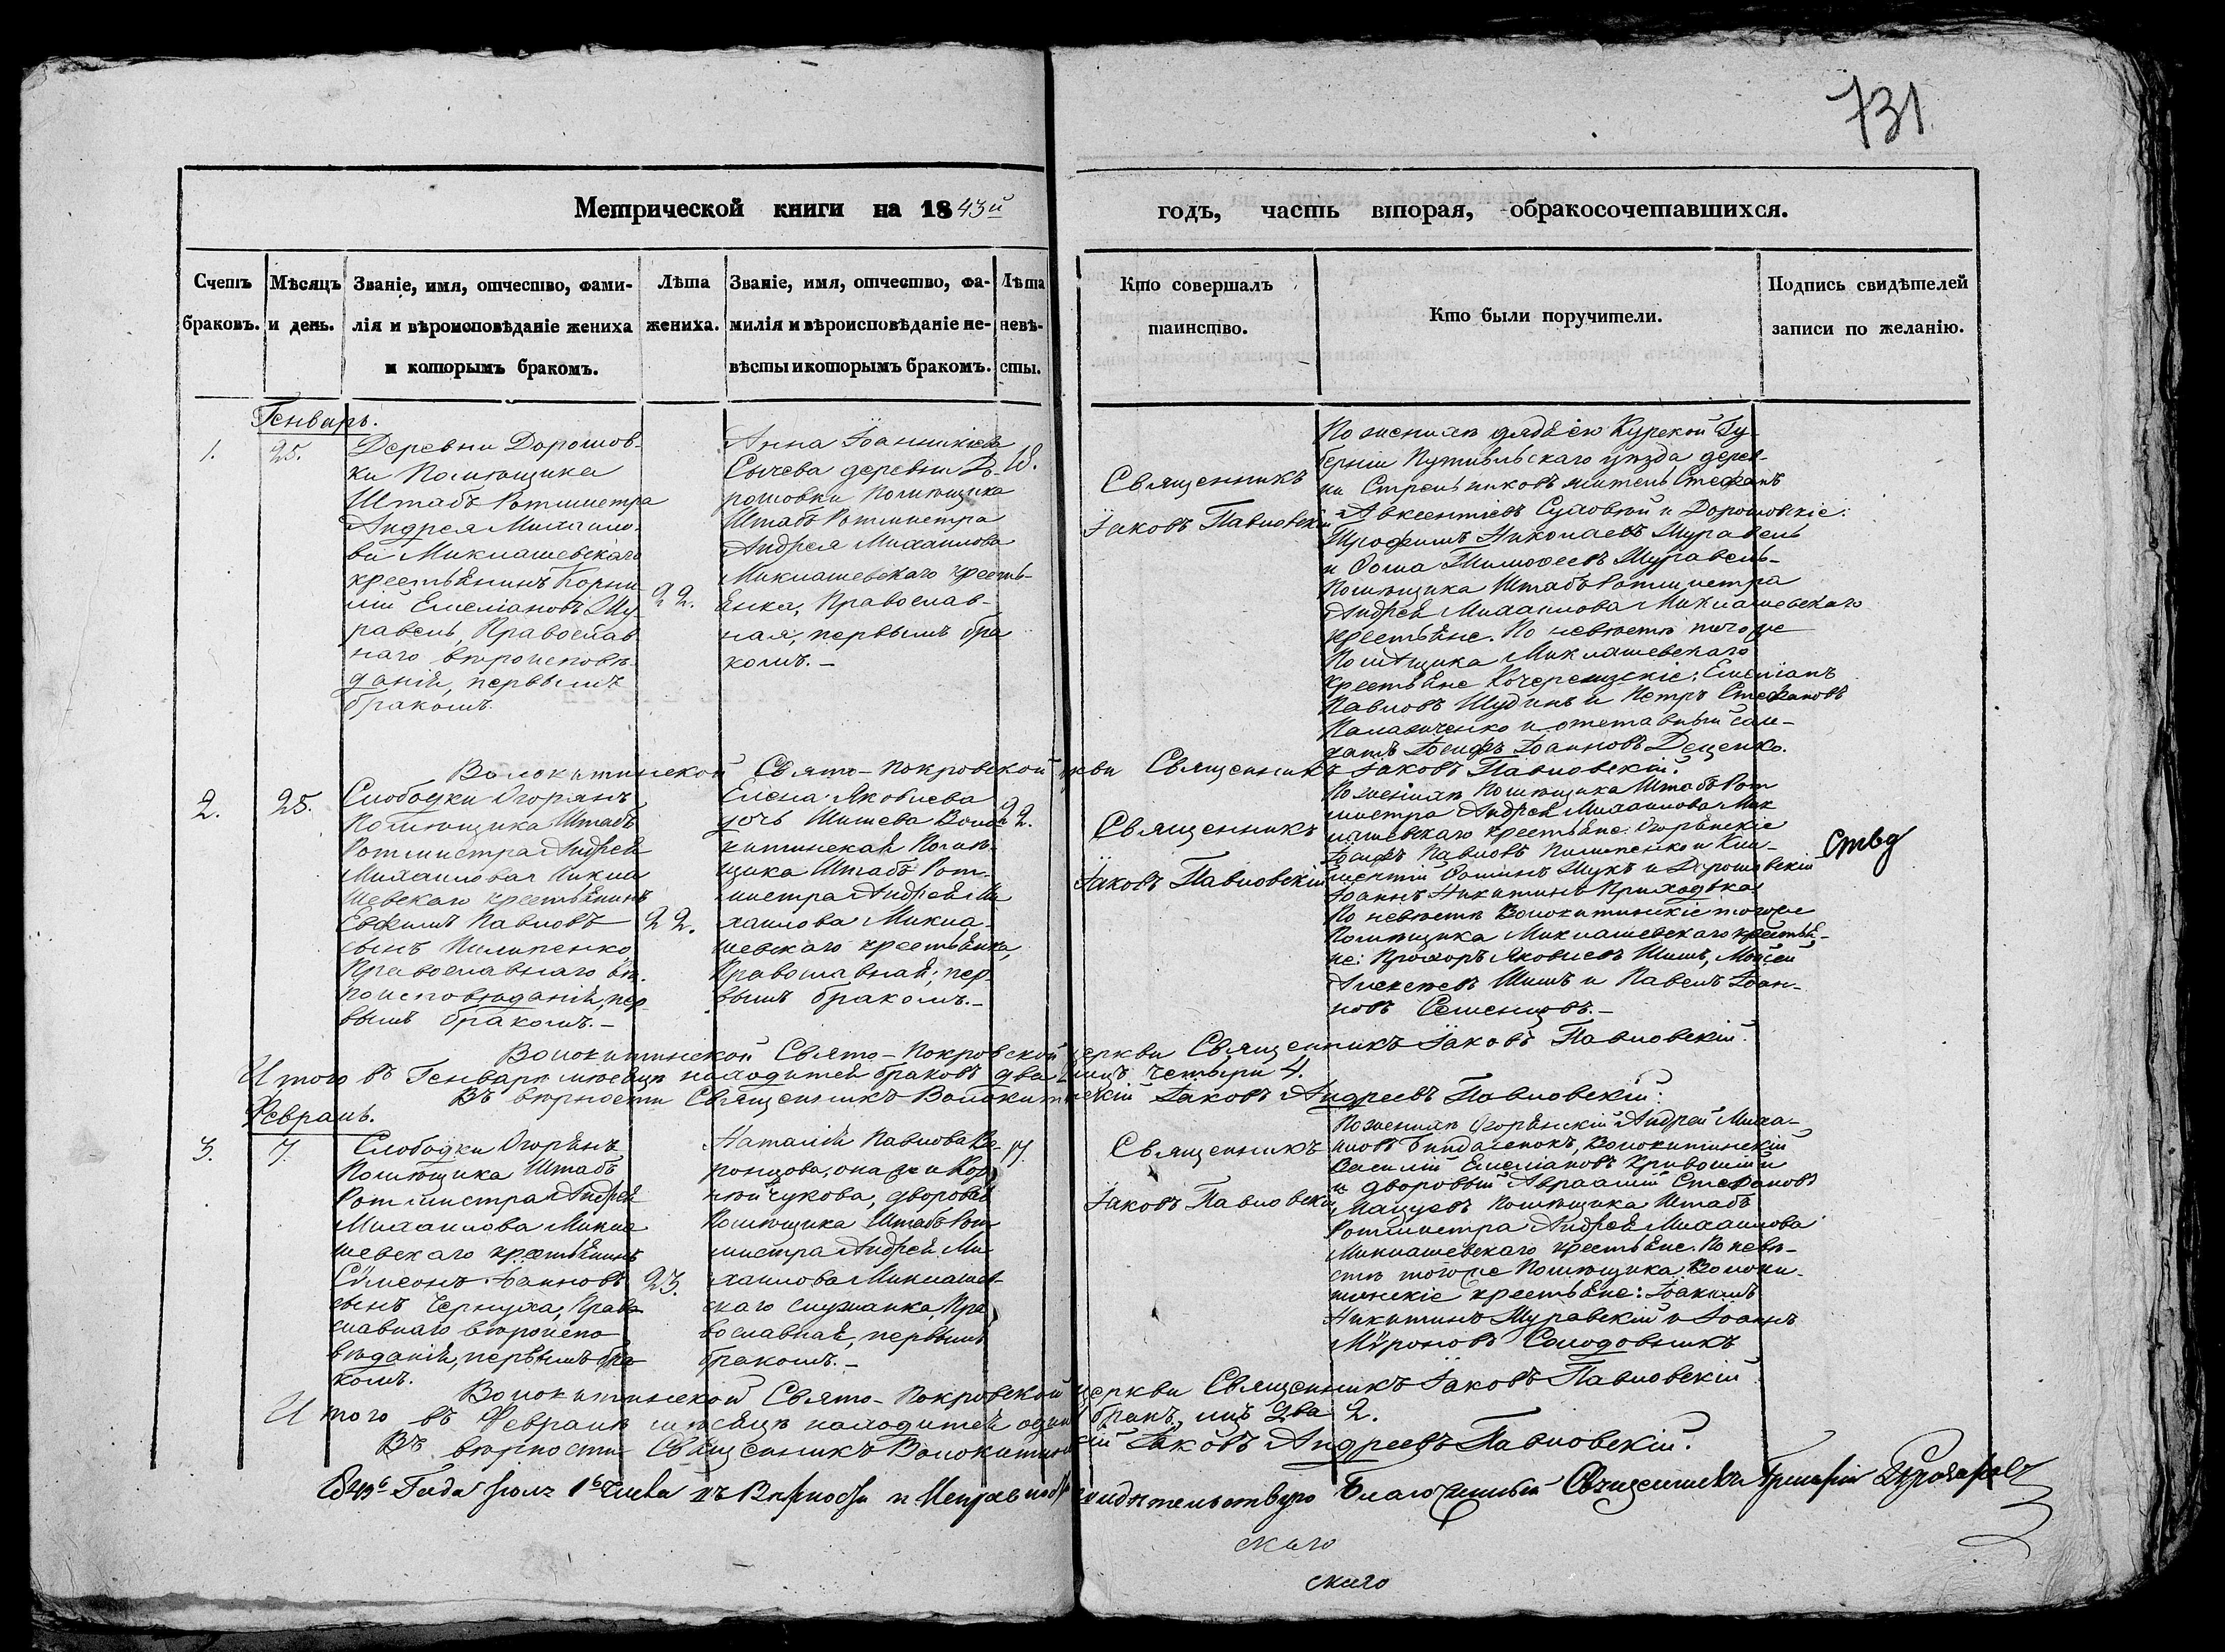 731
Метрической книги на 1843й годъ, часть вторая, о бракосочетавшихся.
Счетъ браковъ.
Мѣсяцъ и день.
Званіе, имя, отчество, фами-
лія и вѣроисповѣданіе жениха
и которымъ бракомъ.
Лѣта
жениха.
Званіе, имя, отчество, фа-
милія и вѣроисповѣданіе не-
вѣсты и которымъ бракомъ.
Лѣта
невѣ-
сты.
Кто совершалъ
таинство.
Кто были поручители.
Подпись свидѣтелей
записи по желанію.
Генварь.
1.
25.
Деревни Дорошов-
ки Помѣщика
Штабъ Ротмистра
Андрея Михаило-
ва Миклашевскаго
крестьянинъ Корни
лій Емеліановъ Жу
равель, Православ
наго вѣроисповѣ-
данія, первымъ
бракомъ.
22.
Анна Іоанникіева
Сычева деревни До-
рошовки Помѣщика
Штабъ Ротмистра
Андрея Михаилова
Миклашевскаго кресть-
янка, Православ-
ная, первымъ бра
комъ.-
18.
Священникъ
Іаковъ Павловскій
По женихѣ дядьею Курской Гу-
берніи Путивльскаго уѣзда дерев-
ни Стрельниковъ житель Стефанъ
Авксентіевъ Суховѣй и Дорошовскіе:
Трофимъ Николаевъ Журавель
и Ѳома Тимоѳеевъ Журавель-
Помѣщика Штабъ Ротмистра
Андрея Михаилова Миклашевскаго
крестьяне. По невѣстѣ тогоже
Помѣщика Миклашевскаго
крестьяне Кочережскіе: Емеліанъ
Павловъ Шудинъ и Петръ Стефановъ
Паламченко и отставный сол-
датъ Іосифъ Іоанновъ Деценко.
Волокитинской Свято-Покровской церкви Священникъ Іаковъ Павловскій.
2.
25.
Слободки Огорянъ
Помѣщика Штабъ
Ротмистра Андрея
Михаилова Микла
шевскаго крестьянинъ
Евфимъ Павловъ
сынъ Пилипенко
Православнаго вѣ-
роисповѣданія, пер
вымъ бракомъ.-
22.
Елена Яковлева
дочь Шишева Воло
китинская Помѣ-
щика Штабъ Рот-
мистра Андрея Ми
хаилова Микла-
шевскаго крестьянка,
Православная, пер
вымъ бракомъ.-
22.
Священникъ
Іаковъ Павловскій
По женихѣ Помѣщика Штабъ Рот
мистра Андрея Михаилова Мик
лашевскаго крестьяне: Огорянскіе
Іосифъ Павловъ Пилипенко и Кли-
ментій Ѳоминъ Щукъ и Дорошовскій
Іоаннъ Никитинъ Приходька.
По невѣстѣ Волокитинскіе тогоже
Помѣщика Миклашевскаго крестья-
не: Прохоръ Яковлевъ Шишъ, Моисей
Алексеевъ Шишъ и Павелъ Іоан-
новъ Семенцовъ.-
ству
Волокитинской Свято-Покровской церкви Священникъ Іаковъ Павловскій.
Итого въ Генварѣ мѣсяцѣ находится браковъ два 2 лицъ четыри 4.
Въ вѣрности Священникъ Волокитинскій Іаковъ Андреевъ Павловскій.
Февраль.
3.
7.
Слободки Огорянъ
Помѣщика Штабъ
Ротмистра Андрея
Михаилова Микла
шевскаго крестьянинъ
Сѵмеонъ Іоанновъ
сынъ Чернуха, Право
славнаго вѣроиспо
вѣданія, первымъ бра
комъ.
23.
Наталія Павлова Во
ронцова, она же и Кор
нѣйчукова, дворовая
Помѣщика Штабъ Рот
мистра Андрея Ми
хаилова Миклашев-
скаго служанка, Пра
вославная, первымъ
бракомъ.-
17.
Священникъ
Іаковъ Павловскій
По женихѣ Огорянскій Андрей Миха-
иловъ Биндаленокъ, Волокитинскій
Василій Емеліановъ Кривошій и
и дворовый Авраамій Стефановъ
Мацуевъ Помѣщика Штабъ
Ротмистра Андрея Михаилова
Миклашевскаго крестьяне. По невѣ-
стѣ тогоже Помѣщика Волоки-
тинскіе крестьяне: Іоакимъ
Никитинъ Журавскій и Іоаннъ
Мѵроновъ Солодовникъ
Волокитинской Свято-Покровской церкви Священникъ Іаковъ Павловскій
Итого въ Февралѣ мѣсяцѣ находится одинъ бракъ, лицъ два 2.
Въ вѣрности Священникъ Волокитинскій Іаковъ Андреевъ Павловскій.
Года 1го числа въ Вѣрности и Исправности свидѣтельствую Благочинный Священникъ Григорій
скаго
скаго